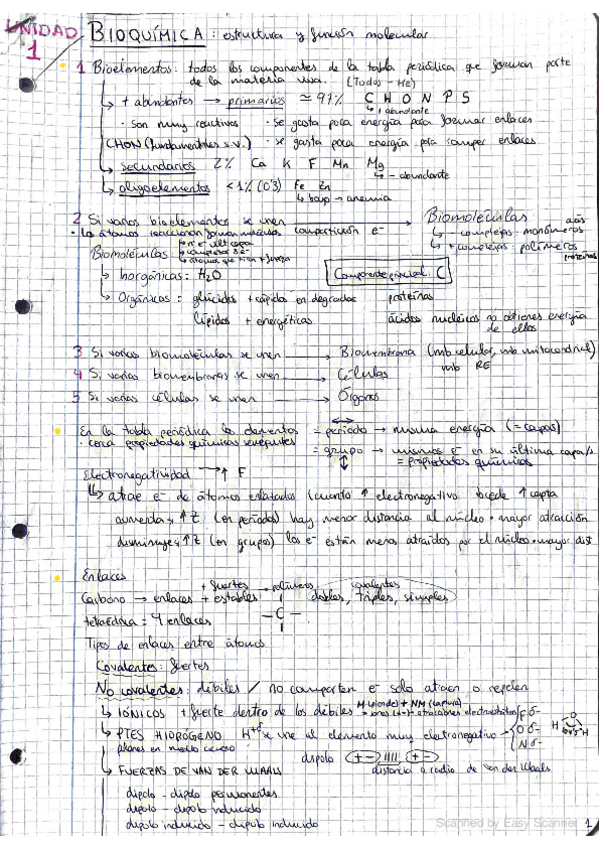 UNIDAD 1
BIOQUÍMICA: estructura y función molecular
1 Bioelementos: todos los componentes de la tabla periódica que forman parte
de la materia viva. (Todos - He)
↳ + abundantes → primarios ≃ 97% C H O N P S
↳ + abundante
· son muy reactivos · se gasta poca energía para formar enlaces
CHON (fundamentales s.v.) · se gasta poca energía para romper enlaces
↳ secundarios 2% Ca K F Mn Mg
↳ - abundante
↳ oligoelementos <1% (0'3) Fe Zn
↳ bajo → anemia
2 Si varios bioelementos se unen → Biomoléculas
· los átomos reaccionan compartición e⁻
↳ - complejas · monómeros
↳ + complejas · polímeros
proteínas
Biomoléculas
↳ Inorgánicas: H₂O
Componente principal: C
↳ Orgánicas = glúcidos + rápidos en degradarse proteínas
lípidos + energéticas ácidos nucleicos no obtienes energía
de ellos
3 Si varias biomoléculas se unen → Biomembrana (mb celular, mb mitocondrial)
mb RE
4 Si varias biomembranas se unen → Células
5 Si varias células se unen → Órganos
En la tabla periódica los elementos = periodo → misma energía (= capas)
· cerca propiedades químicas semejantes
= grupo → mismos e⁻ en su última capa/s
= propiedades químicas
Electronegatividad → ↑ F
↳ atrae e⁻ de átomos enlazados (cuanto ↑ electronegativo ↑ capta
aumenta: ↑ Z (en periodos) hay menor distancia al núcleo · mayor atracción
disminuye: ↑ Z (en grupos) los e⁻ están menos atraídos por el núcleo · mayor dist
Enlaces
+ fuertes → polímeros covalentes
Carbono → enlaces + estables - C - dobles, triples, simples
tetraédrica = 4 enlaces
Tipos de enlaces entre átomos
Covalentes: fuertes
No covalentes: débiles / no comparten e⁻ solo atraen o repelen
↳ IÓNICOS + fuerte dentro de los débiles
↳ PTES HIDRÓGENO H δ+ se une al elemento muy electronegativo
F δ-
O δ-
N δ-
↳ FUERZAS DE VAN DER WAALS dipolo (+ -) |||| (+ -)
distancia o radio de van der Waals
dipolo - dipolo permanentes
dipolo - dipolo inducido
dipolo inducido - dipolo inducido
Scanned by Easy Scanner
1